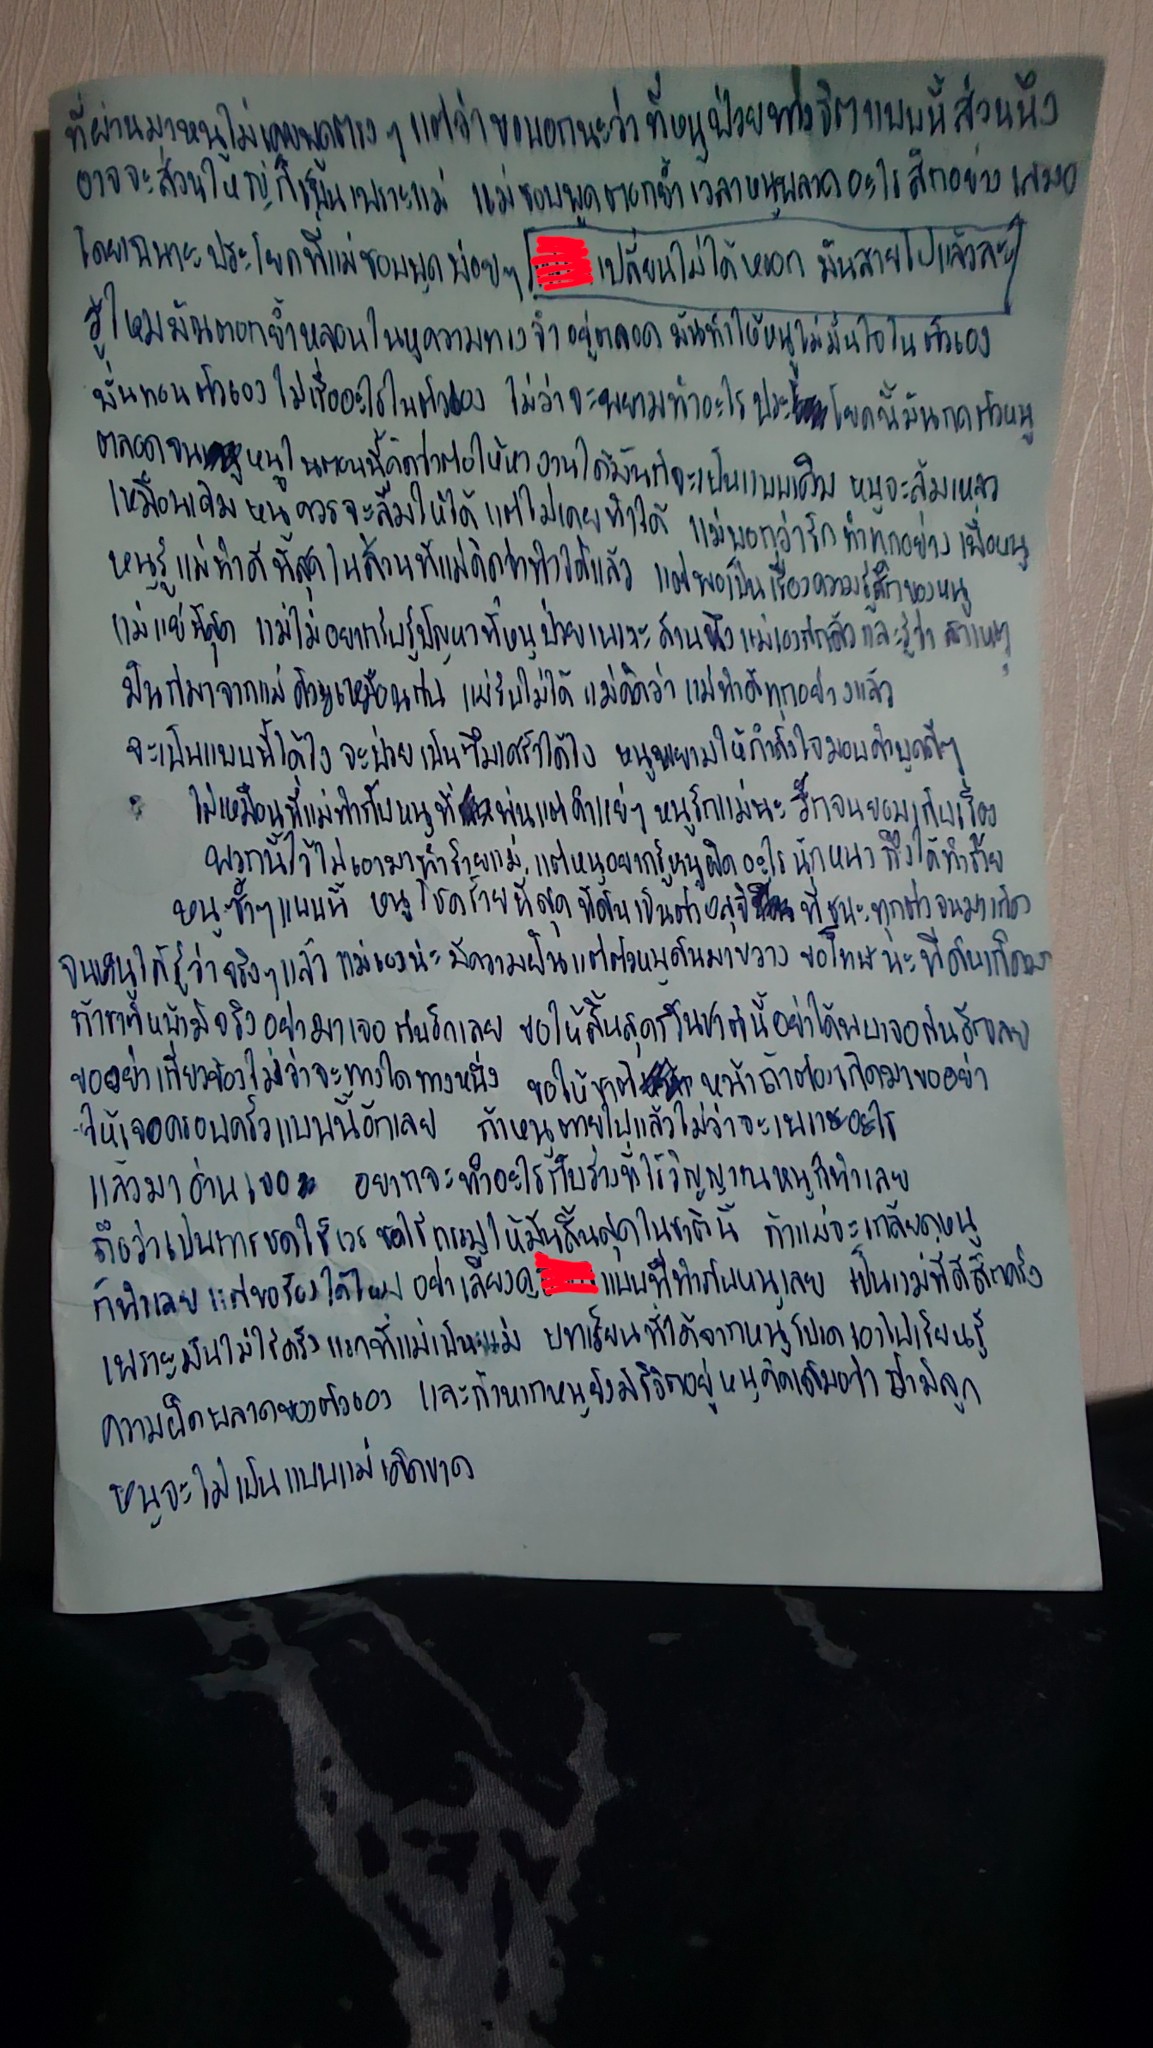 ที่ผ่านมาหนูไม่เคยพูดตรงๆ แต่จ๋าขอบอกนะว่า ที่หนูป่วยทางจิตแบบนี้ส่วนนึง
อาจจะส่วนใหญ่ก็เป็นเพราะแม่ แม่ชอบพูดตอกย้ำเวลาหนูพลาดอะไรสักอย่าง เสมอ
โดยเฉพาะประโยคที่แม่ชอบพูดบ่อยๆ เปลี่ยนไม่ได้หรอก มันสายไปแล้วละ
รู้ไหมมันตอกย้ำหลอนในหูความทรงจำอยู่ตลอด มันทำให้หนูไม่มั่นใจในตัวเอง
บั่นทอนตัวเอง ไม่เชื่ออะไรในตัวเอง ไม่ว่าจะพยามทำอะไร ประโยคนี้มันกดตัวหนู
ตลอดจน หนูในตอนนี้คิดว่าต่อให้หางานได้มันก็จะเป็นแบบเดิม หนูจะล้มเหลว
เหมือนเดิม หนูควรจะลืมให้ได้ แต่ไม่เคยทำได้ แม่บอกว่ารัก ทำทุกอย่าง เพื่อหนู
หนูรู้แม่ทำดีที่สุดในส่วนที่แม่คิดว่าทำได้แล้ว แต่พอเป็นเรื่องความรู้สึกของหนู
แม่แย่ที่สุด แม่ไม่อยากรับรู้ปัญหาที่หนูป่วยเพราะส่วนนึงแม่เองก็กลัวและรู้ว่า สาเหตุ
มันก็มาจากแม่ด้วยเหมือนกัน แม่รับไม่ได้ แม่คิดว่า แม่ทำดีทุกอย่างแล้ว
จะเป็นแบบนี้ได้ไง จะป่วยเป็นซึมเศร้าได้ไง หนูพยามให้กำลังใจมอบคำพูดดีๆ
ไม่เหมือนที่แม่ทำกับหนูที่ พ่นแต่คำแย่ๆ หนูรักแม่นะ รักจนยอมเก็บเรื่อง
พวกนี้ไว้ไม่เอามาทำร้ายแม่ แต่หนูอยากรู้หนูผิดอะไรนักหนา ถึงได้ทำร้าย
หนูซ้ำๆแบบนี้ หนูโชคร้ายที่สุด ที่ดันเป็นตัวอสุจิ ที่ชนะทุกตัวจนมาเกิด
จนหนูได้รู้ว่าจริงๆแล้ว แม่เองน่ะมีความฝันแต่ตัวหนูดันมาขวาง ขอโทษนะที่ดันเกิดมา
ถ้าชาติหน้ามีจริงอย่ามาเจอกันอีกเลย ขอให้สิ้นสุดกันชาตินี้อย่าได้พบเจอกันอีกเลย
ขออย่าเกี่ยวข้องไม่ว่าจะทางใดทางหนึ่ง ขอให้ชาติ หน้าถ้าต้องเกิดมาขออย่า
ให้เจอครอบครัวแบบนี้อีกเลย ถ้าหนูตายไปแล้วไม่ว่าจะเพราะอะไร
แล้วมาอ่านเจอ อยากจะทำอะไรกับร่างที่ไร้วิญญาณหนูก็ทำเลย
ถือว่าเป็นการชดใช้เวร ชดใช้กรรม ให้มันสิ้นสุดในชาตินี้ ถ้าแม่จะเกลียดหนู
ก็ทำเลย แต่ขอร้องได้ไหม อย่าเลี้ยง แบบที่ทำกับหนูเลย เป็นแม่ที่ดีสักครั้ง
เพราะมันไม่ใช่ครั้งแรกที่แม่เป็นแม่ บทเรียนที่ได้จากหนูโปรดเอาไปเรียนรู้
ความผิดพลาดของตัวเอง และถ้าหากหนูยังมีชีวิตอยู่ หนูคิดเสมอว่า ถ้ามีลูก
หนูจะไม่เป็นแบบแม่เด็ดขาด